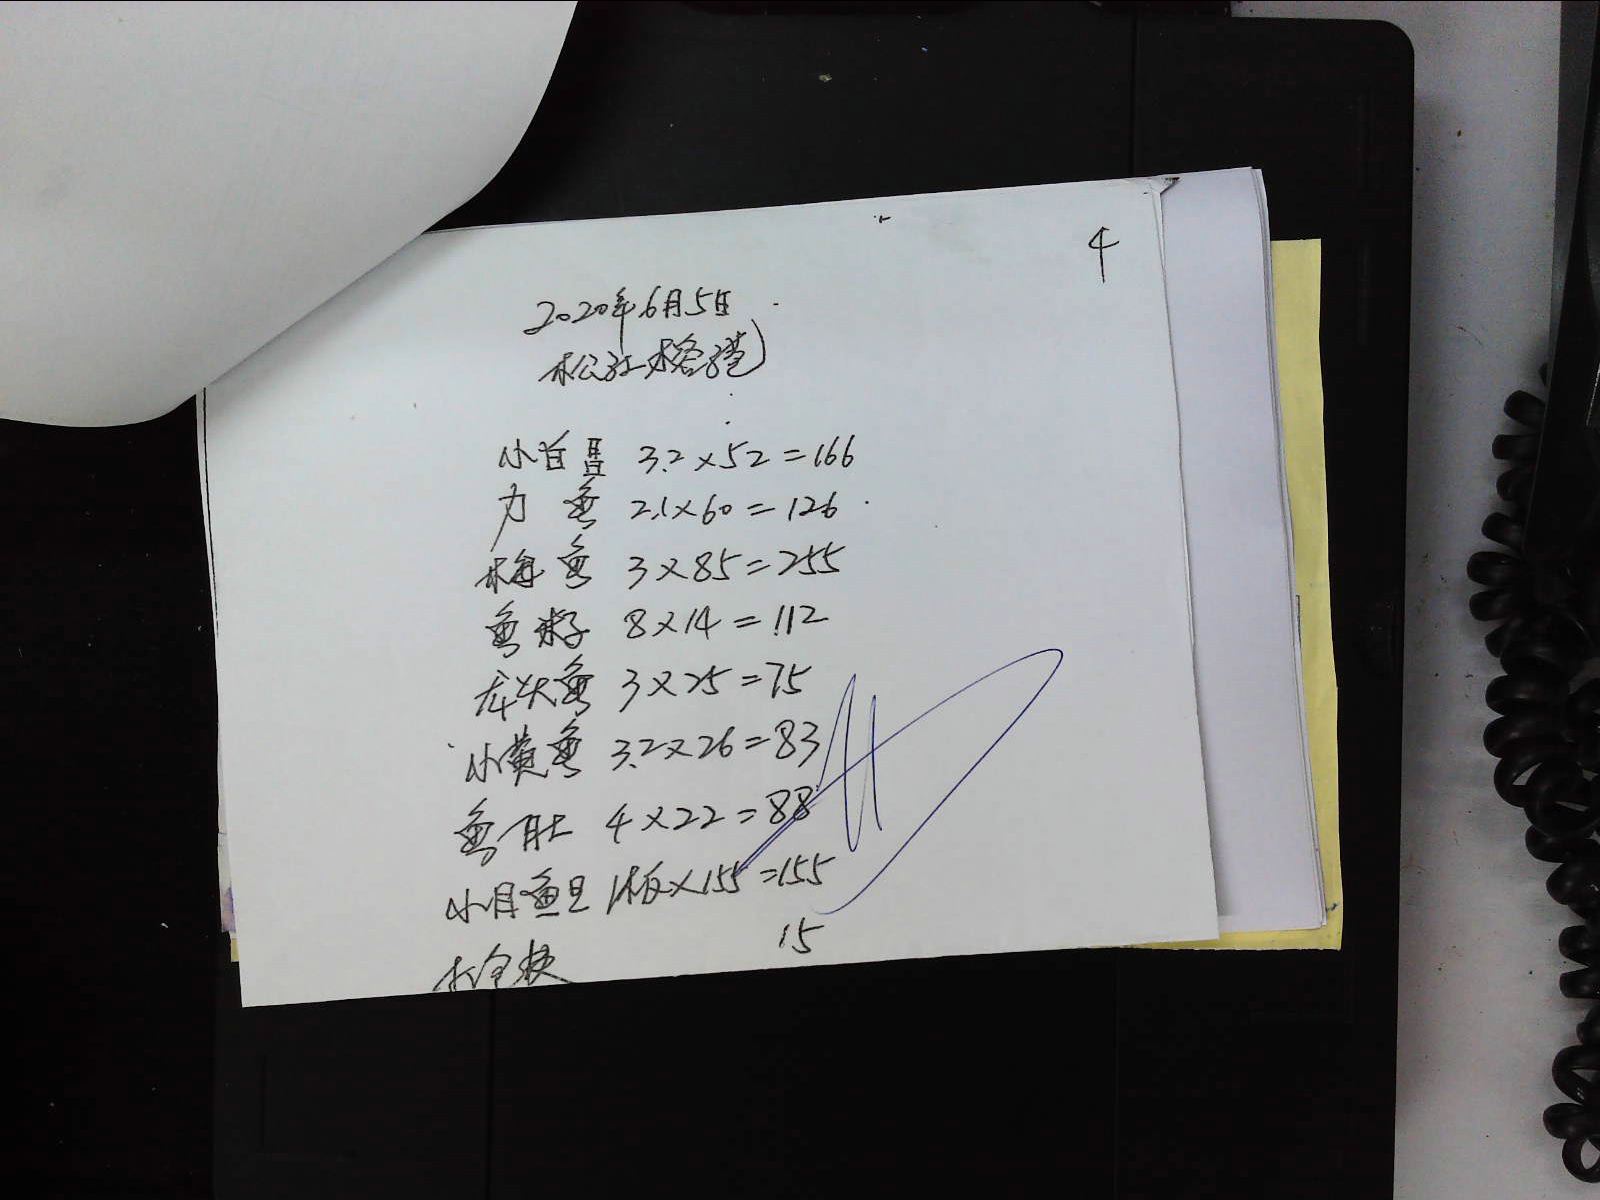 4
2020年6月5日
松江
小白 3.2×52=166
力鱼 2.1×60=126
梅鱼 3×85=255
鱼籽 8×14=112
龙头鱼 3×25=75
小黄鱼 3.2×26=83
鱼肚 4×22=88
小目鱼旦 1板×155=155
15